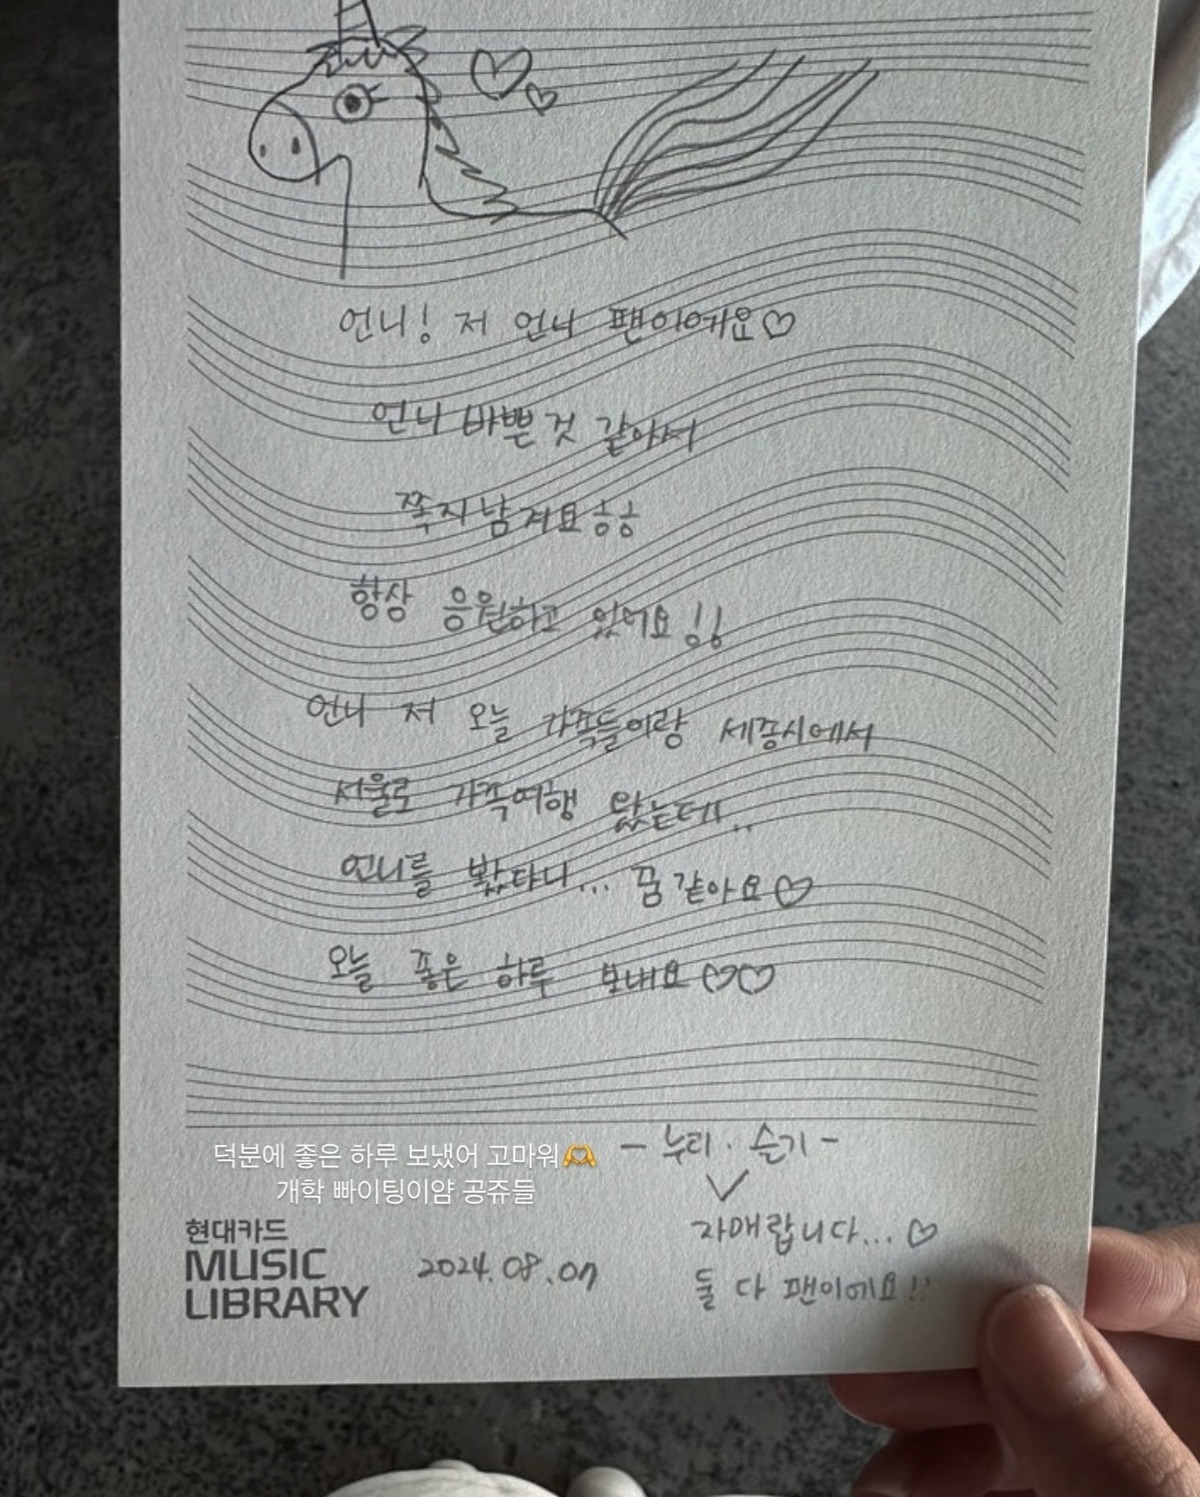 언니! 저 언니 팬이에요♡
언니 바쁜것 같아서
쪽지남겨요ㅎㅎ
항상 응원하고 있어요!!
언니 저 오늘 가족들이랑 세종시에서
서울로 가족여행 왔는데..
언니를 봤다니... 꿈 같아요♡
오늘 좋은 하루 보내요♡♡
- 누리 · 슬기 -
자매랍니다...♡
둘 다 팬이에요!!
덕분에 좋은 하루 보냈어 고마워🫶
개학 빠이팅이얌 공쥬들
현대카드
MUSIC
LIBRARY
2024.08.07